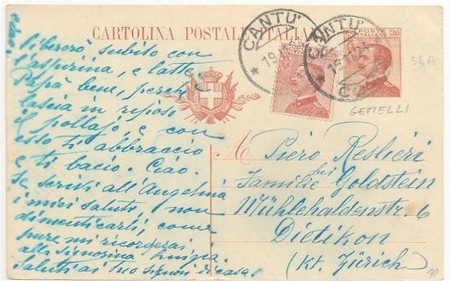 CARTOLINA POSTALE ITALIANA
CANTÙ
CANTÙ
30
GEMELLI
libererò subito con
l'aspirina, e latte.
Papà bene, perchè
lascia in riposo
il pollajo e con
esso ti abbraccio
e ti bacio. Ciao.
se scrivi all'Angelina
i miei saluti, non
dimenticarti, come
pure mi ricorderai
alla signorina
Saluti ai tuo signori di casa.
A Piero Reslieri
bei
Familie Goldstein
Mühlehaldenstr. 6
Dietikon
(Kt. Zürich)